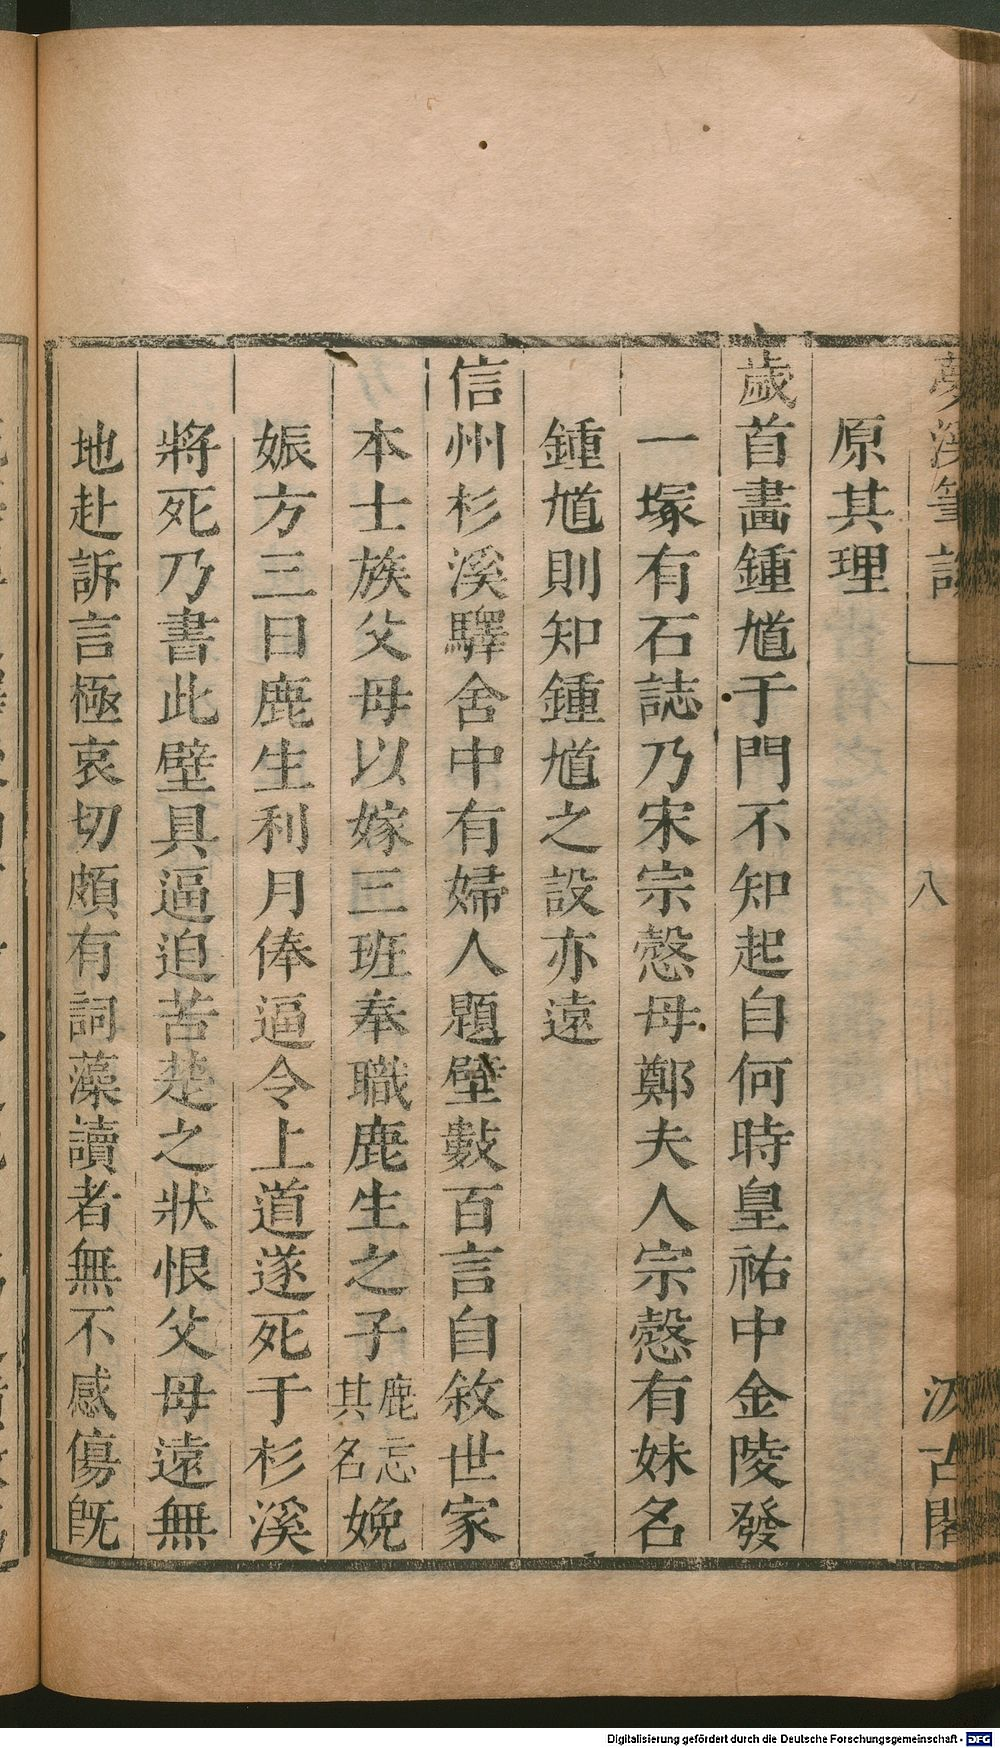 夢溪筆談 八 汲古閣
原其理
歲首畫鍾馗于門不知起自何時皇祐中金陵發
一塚有石誌乃宋宗愨母鄭夫人宗愨有妹名
鍾馗則知鍾馗之設亦遠
信州杉溪驛舍中有婦人題壁數百言自敘世家
本士族父母以嫁三班奉職鹿生之子鹿忘其名娩
娠方三日鹿生利月俸逼令上道遂死于杉溪
將死乃書此壁具逼迫苦楚之狀恨父母遠無
地赴訴言極哀切頗有詞藻讀者無不感傷旣
Digitalisierung gefördert durch die Deutsche Forschungsgemeinschaft - DFG